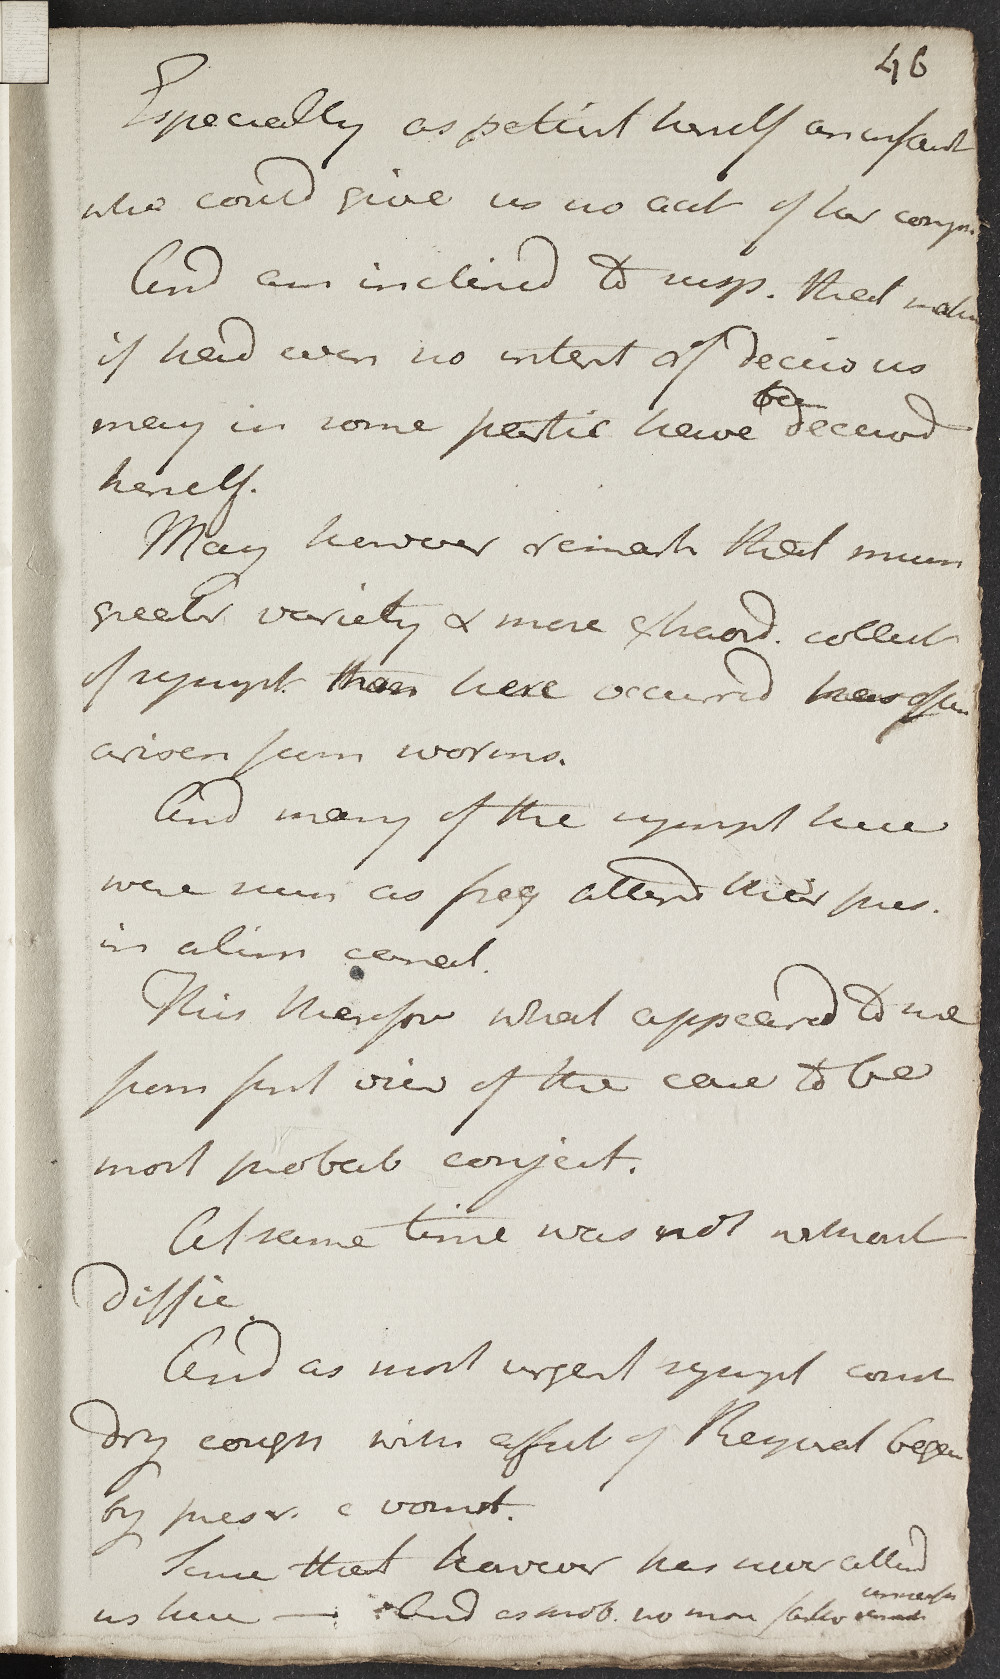 46
Especially as patient herself an infant
who could give us no acct of her comp.
And am inclined to susp. that
if had even no intent of deceiv us
may in some partic have been deceived
herself.
May however remark that much
greater variety & more extraord. collect
of sympt. than here occurred has often
arisen from worms.
And many of the sympt here
were such as freq attend their pres.
in alim canal.
This therefore what appeared to me
from first view of the case to be
most probab conject.
At same time was not without
Diffic.
And as most urgent sympt const
dry cough with affect of began
by prescr. a vomit.
Since that however has never attend
us here — And as prob. no more farther